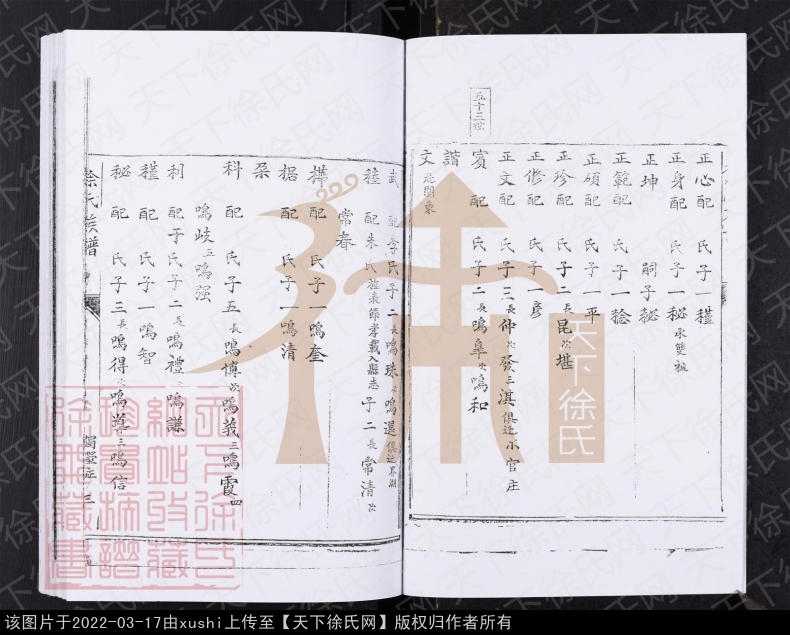 正心配 氏子一 穜
正身配 氏子一 秘 承雙祧
正坤 嗣子 秘
正範配 氏子一 稔
正碩配 氏子一 平
正珍配 氏子二 長昆 次堪
正修配 氏子一 彥
正文配 氏子三 長仲 次發 三淇 俱遷小官庄
五十三世
賓 配 氏子二 長鳴皋 次鳴和
諧
文 之關東
武 配李氏子二 長鳴珠 次鳴運
稑 配朱氏 旌表節孝載入縣志 子二 長常清 次
常春
樺 配 氏子一 鳴奎
椐 配 氏子一 鳴清
朶
科 配 氏子五 長鳴博 次鳴義 三鳴霞 四
鳴岐 五鳴强
利 配于氏子二 長鳴禮 次鳴謙
穜 配 氏子一 鳴智
秘 配 氏子三 長鳴得 次鳴尊 三鳴信
徐氏族譜
三
天下徐氏
天下徐氏网
该图片于2022-03-17由xushi上传至【天下徐氏网】版权归作者所有